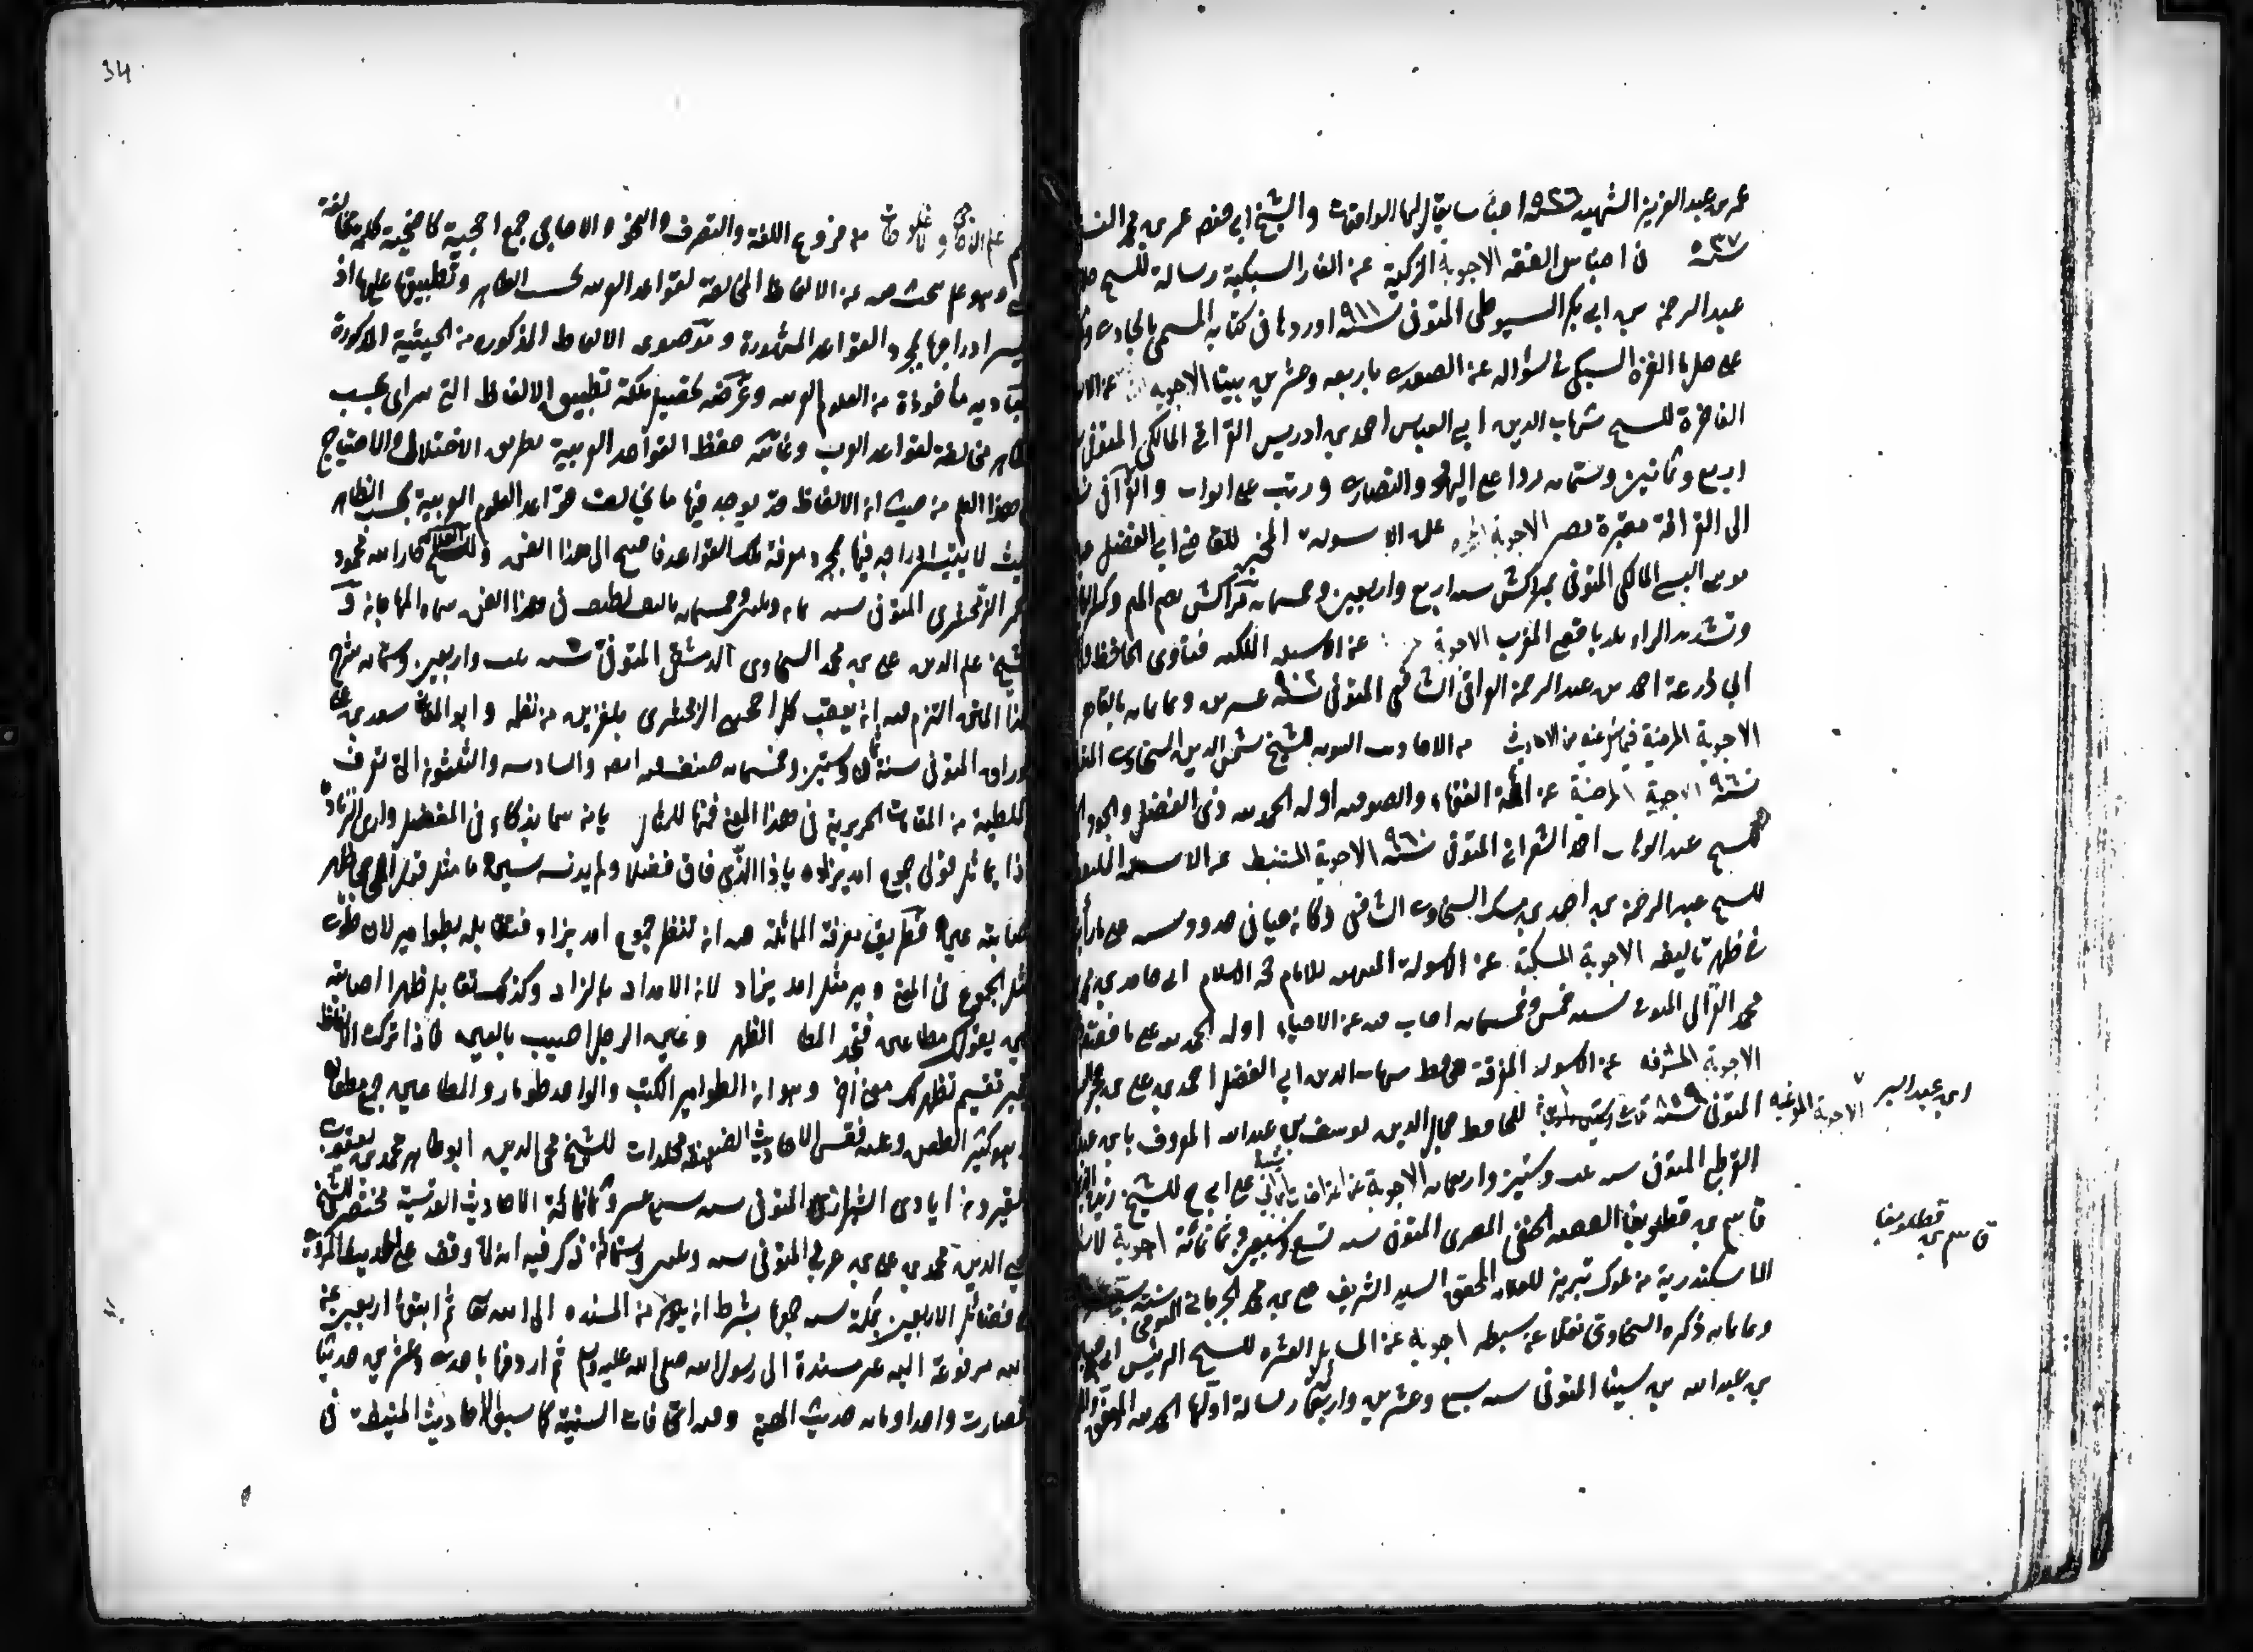 عمر بن عبد العزيز الشهيد ٥٣٦ اجناس يقال لها الواقعات والشيخ ابي حفص عمر بن محمد النسفي
سنة ٥٣٧ في اجناس الفقه الاجوبة الزكية عن الالغاز السبكية رسالة للشيخ جلال
عبد الرحمن بن ابي بكر السيوطي المتوفى سنة ٩١١ اوردها في كتابه المسمى بالحاوى
على حل ما الغزه السبكي في سؤاله عن الصفدى باربعه وعشرين بيتا الاجوبه عن
الفاخرة للشيخ شهاب الدين ابي العباس احمد بن ادريس القرافي المالكي المتوفى
اربع وثمانين وستمائه ردا على اليهود والنصارى ورتب على ابواب والقرافي
الى القرافة مقبرة بمصر الاجوبة عن الاسولة للقاضي ابي الفضل
موسى البستي المالكي المتوفى بمراكش سنه اربع واربعين وخمسمائه مراكش بضم الميم
وتشديد الراء بلد باقصى المغرب الاجوبة عن الاسئله المكيه فتاوى الحافظ
ابي زرعة احمد بن عبد الرحمن العراقي الشافعي المتوفى سنة عشرين وثمانمائه بالقاهره
الاجوبة المرضية فيما سئل عنه من الاحاديث من الاحاديث النبويه للشيخ شمس الدين السخاوى
الاجوبة المرضية عن ائمة الفقهاء والصوفيه اوله الحمد لله ذى الفضل والجود
للشيخ عبد الوهاب احمد الشعراني المتوفى سنة ٩٦٠ الاجوبة المستنبط عن الاسئله
للشيخ عبد الرحمن بن احمد بن مسك السخاوى الشافعي وكان حيا في حدود
في ظهر تاليفه الاجوبة المسكتة عن الاسولة المبهمه للامام حجه الاسلام ابي حامد بن
محمد الغزالي المتوفى سنه خمس وخمسمائه اجاب فيه عن الاحياء اوله الحمد لله على ما
الاجوبة المشرقه عن الاسوله المفرقة للحافظ شهاب الدين ابي الفضل احمد بن علي بن حجر
المتوفى سنة ٨٥٢ الاجوبة الموعبه للحافظ جمال الدين يوسف بن عبد الله المعروف بابن عبد
القرطبي المتوفى سنه ثلث وستين واربعمائه الاجوبة عن اعتراضات ابن ابي شيبة على ابي ح للشيخ
قاسم بن قطلوبغا الفقيه الحنفي المصرى المتوفى سنه تسع وسبعين وثمانمائة اجوبة
الاسكندرية من ملوك تبريز للعلامه المحقق السيد الشريف علي بن محمد الجرجاني المتوفى
وثمانمائه ذكره السخاوى نقلا عن سبطه اجوبة عن المسائل العشره للشيخ الرئيس ابي علي
بن عبد الله بن سينا المتوفى سنه سبع وعشرين واربعمائة رسالة اولها الحمد لله
ابن عبد البر
قاسم بن قطلوبغا
34
علم الاحاجي والاغلوطات من فروع اللغة والتصرف والنحو والاحاجي جمع احجية كاضحية كلمة مخالفة
وهو علم يبحث فيه عن الالفاظ المخالفة لقواعد العربيه بحسب الظاهر وتطبيقها عليها اذ
يتيسر ادراجها بمجرد القواعد المشهورة وموضوعه الالفاظ المذكوره من الحيثية المذكورة
ومباديه ماخوذة من العلوم العربيه وغرضه تحصيل ملكة تطبيق الالفاظ التي تتراءى بحسب
الظاهر مخالفة لقواعد العرب وغايته حفظ القواعد العربية بطرق الاختلال والاحتياج
الى هذا العلم من حيث ان الالفاظ قد يوجد فيها ما يخالف قواعد العلوم العربية بحسب الظاهر
بحيث لا يتيسر ادراجه فيها بمجرد معرفة تلك القواعد فاحتيج الى هذا الفن وللعلامه جار الله محمود
بن عمر الزمخشرى المتوفى سنه ثمان وثلثين وخمسمائه تاليف لطيف في هذا الفن سماه المحاجاة و
للشيخ علم الدين علي بن محمد السخاوى الدمشقي المتوفى سنه ثلث واربعين وستمائه شرح
هذا المتن التزم فيه ان يعقب كل احجيتى الزمخشرى بلغزين من نظمه وابو المعالي سعد بن علي
الوراق المتوفى سنة ثمان وستين وخمسمائه صنف فيه ايضا والسادسه والثلثون التي تعرف
بالملطية من المقامات الحريرية في هذا المعنى فمنها للمثال يا من سما بذكاء في الفضل وارى الزناد
ماذا يماثل قولي جوع امد بزاد يا ذا الذى فاق فضلا ولم يدنسه شين ما مثل قول المحاجي ظهر
اصابته عين فطريق معرفة المماثلة فيه ان تنظر جوع امد بزاد فتقابله بطوامير لان طوى
مثل الجوع في المعنى ومير مثل امد بزاد لان الامداد بالزاد وكذلك تقابل ظهر اصابته
عين بقولك مطا عين فتجد المطا الظهر وعين الرجل اصيب بالعين فاذا تركت الالفاظ
بغير تقسيم تظهر لك معنى آخر وهو ان الطوامير الكتب والواحد طومار والمطاعين جمع مطعان
وهو كثير الطعن وعد نفسي الاحاديث الضعيفة مجلدات للشيخ مجد الدين ابو طاهر محمد بن يعقوب
الفيروز ابادى الشيرازى المتوفى سنه سبع عشر وثمانمائة الاحاديث القدسية مختصر للشيخ
محيي الدين محمد بن علي بن عربي المتوفى سنه وثلثين وستمائة ذكر فيه انه لما وقف على الحديث المروية
في فضائل الاربعين بمكة سنه جمعها بشرط ان يكون من المسنده الى الله تعالى ثم اتبعها اربعين عن
الله مرفوعة اليه غير مسندة الى رسول الله صلى الله عليه وسلم ثم اردفها باحدى وعشرين حديثا
فصارت واحدا ومائه حديث الهيه وفيه الاتحافات السنية كما سبق الاحاديث المنيفة في